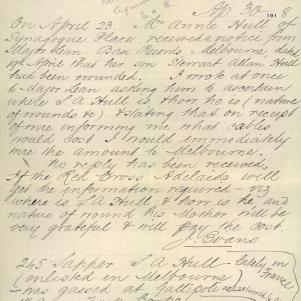 Ap 30 1918
On April 23. Mrs Annie Hull of
Synagogue Place received a notice from
Major Lean Base Records Melbourne dated
19th April that her son Stewart Allan Hull
had been wounded. I wrote at once
to Major Lean asking him to ascertain
where S A Hull is & how he is (nature
of wounds &c) & stating that on receipt
of wire informing me what cables
would cost I would immediately
wire the amount to Melbourne.
No reply has been received.
If the Red Cross Adelaide will
get the information required - viz
where is S A Hull & how is he, and
nature of wound his Mother will be
very grateful & will pay the cost.
J. Evans
245 Sapper S A Hull - Lately in
(enlisted in Melbourne) France
was gassed at Gallipoli returned